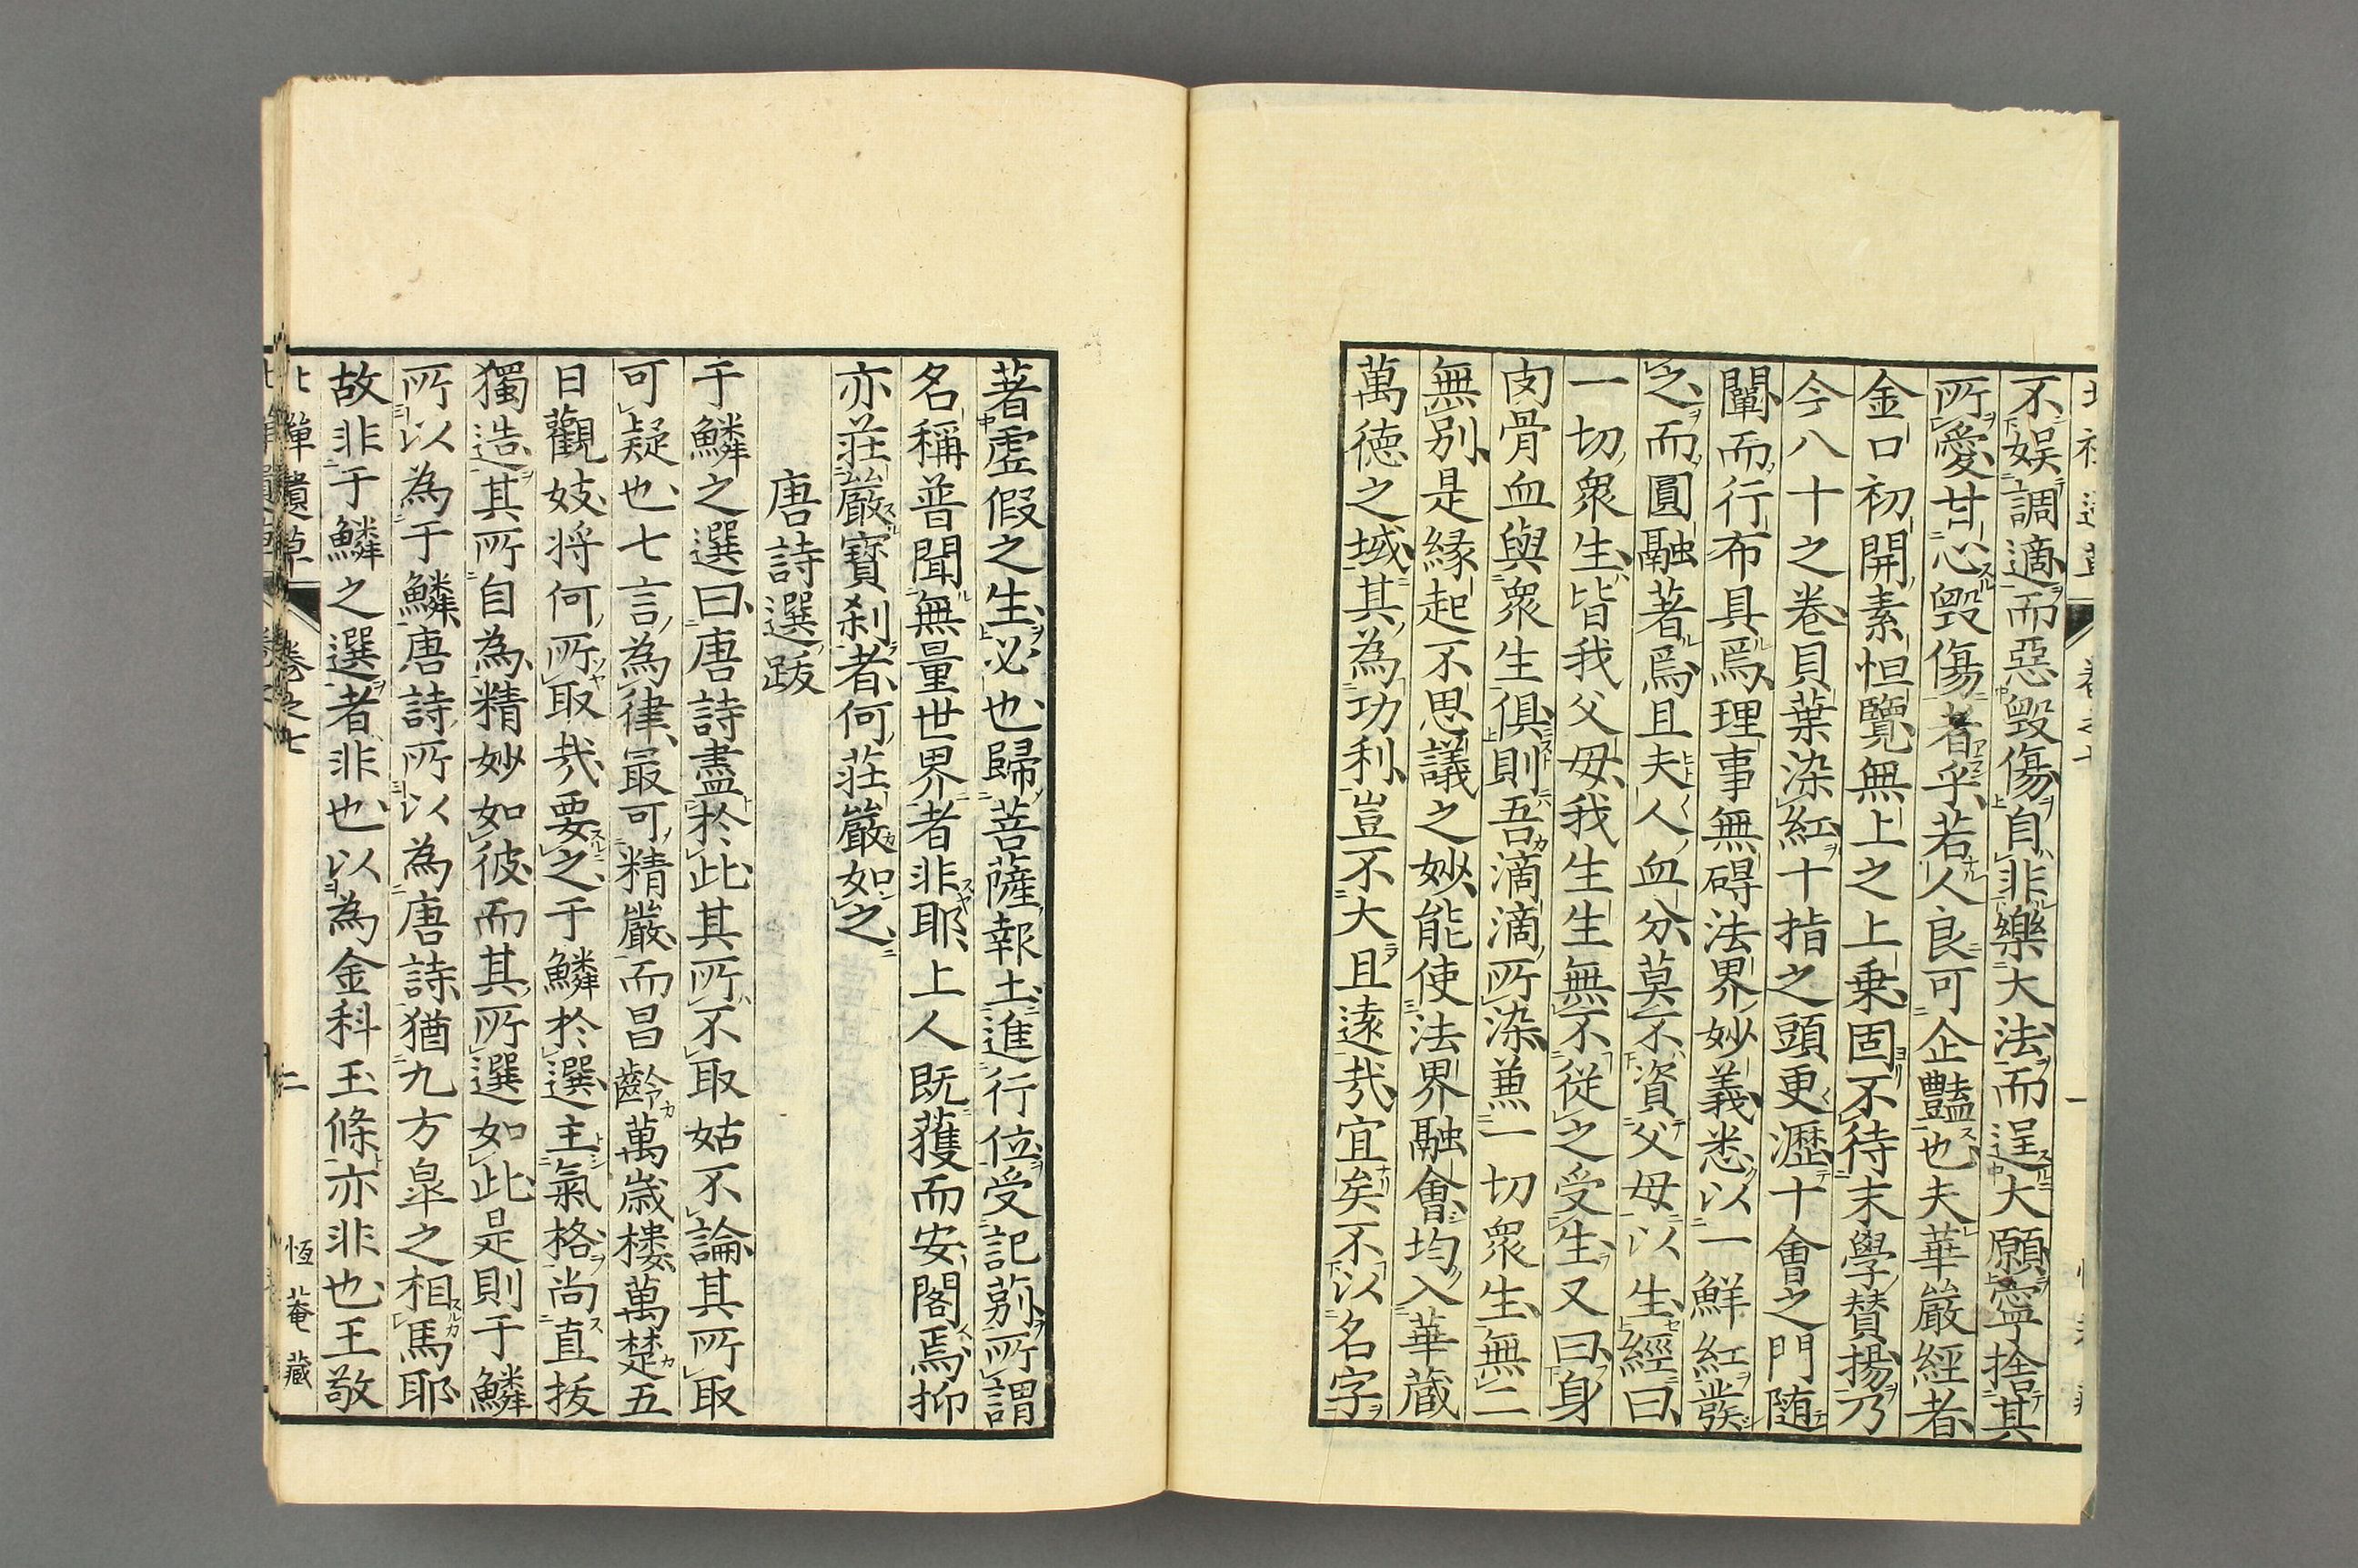 不娯調適而惡毀傷自非樂大法而逞大願寧捨其
所愛甘心毀傷者乎若人良可企豔也夫華嚴經者
金口初開素怛覽無上之上乗固不待末學賛揚乃
今八十之巻貝葉染紅十指之頭更瀝十會之門随
闡而行布具焉理事無碍法界妙義悉以一鮮紅發
之而圓融著焉且夫人血分莫不資父母以生經曰
一切衆生皆我父母我生生無不從之受生又曰身
肉骨血與衆生俱則吾滴滴所染兼一切衆生無二
無別是縁起不思議之妙能使法界融會均入華蔵
萬徳之域其為功利豈不大且遠哉宜矣不以名字
著虚假之生必也歸菩薩報土進行位受記莂所謂
名稱普聞無量世界者非耶上人既獲而安閣焉抑
亦荘嚴寳刹者何荘嚴如之
唐詩選跋
于鱗之選曰唐詩盡於此其所不取姑不論其所取
可疑也七言為律最可精嚴而昌齡萬歳樓萬楚五
日觀妓将何所取哉要之于鱗於選主氣格尚直拔
獨造其所自為精妙如彼而其所選如此是則于鱗
所以為于鱗唐詩所以為唐詩猶九方皐之相馬耶
故非于鱗之選者非也以為金科玉條亦非也王敬
北禅遺草 巻之七 二 恆菴藏